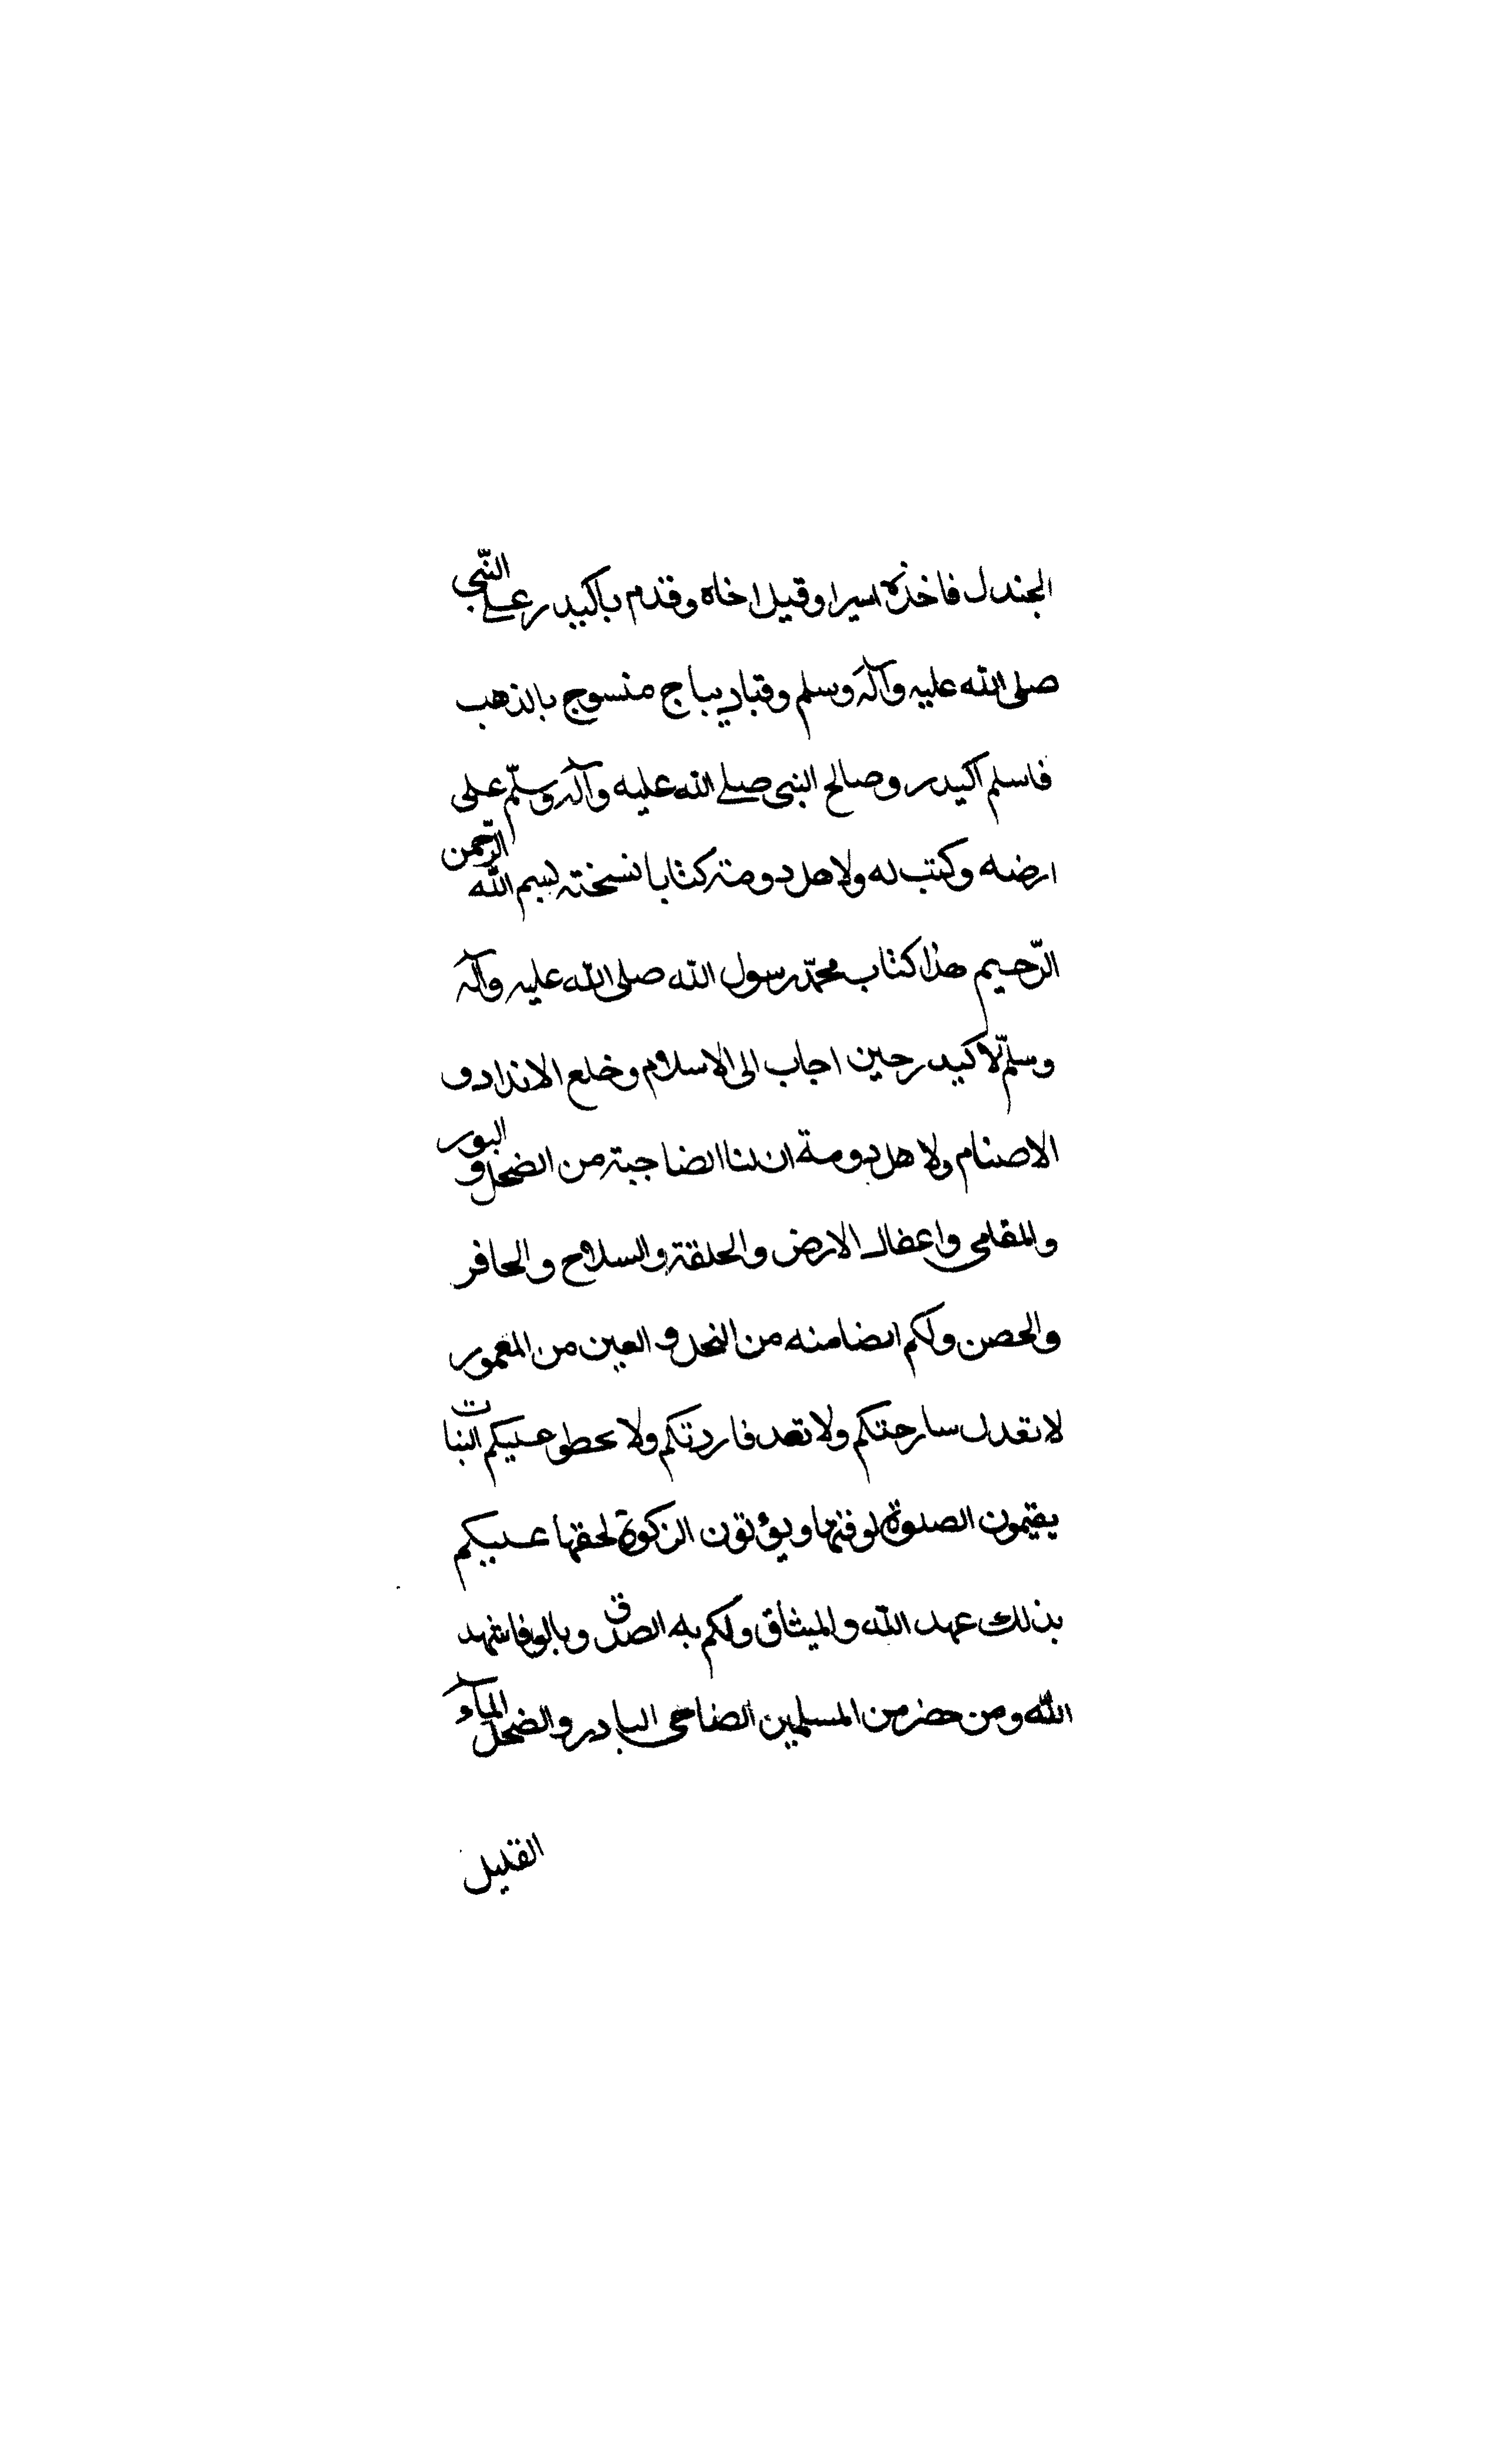 الجندل فاخذه اسيرا وقيل اخاه وقدم باكيدر على النّبي
صلى الله عليه وآله وسلم وقبا ديباج منسوج بالذهب
فاسلم اكيدر وصالح النبى صلى الله عليه وآله وسلّم على
ارضه وكتب له ولاهل دومة كتابا نسخته بسم الله الرّحمن
الرّحيم هذا كتاب محمّد رسول الله صلى الله عليه وآله
وسلّم لاكيدر حين اجاب الى الاسلام وخلع الانداد و
الاصنام ولاهل دومة ان لنا الضاجية من الضحل و البور
والمقامى واعفال الارض والحلقة والسلاح والحافر
والحصن ولكم الضامنه من النخل و العين من المعمور
لا تعدل سارحتكم ولا تعد فاردتكم ولا يحطو عليكم النبات
يقيمون الصلوة لوقتها ويؤتون الزكوة لحقها عليكم
بذلك عهد الله والميثاق ولكم به الصدق وبالوفا شهد
الله ومن حضر من المسلمين الضاحى البادر والضحل المآء
القليل